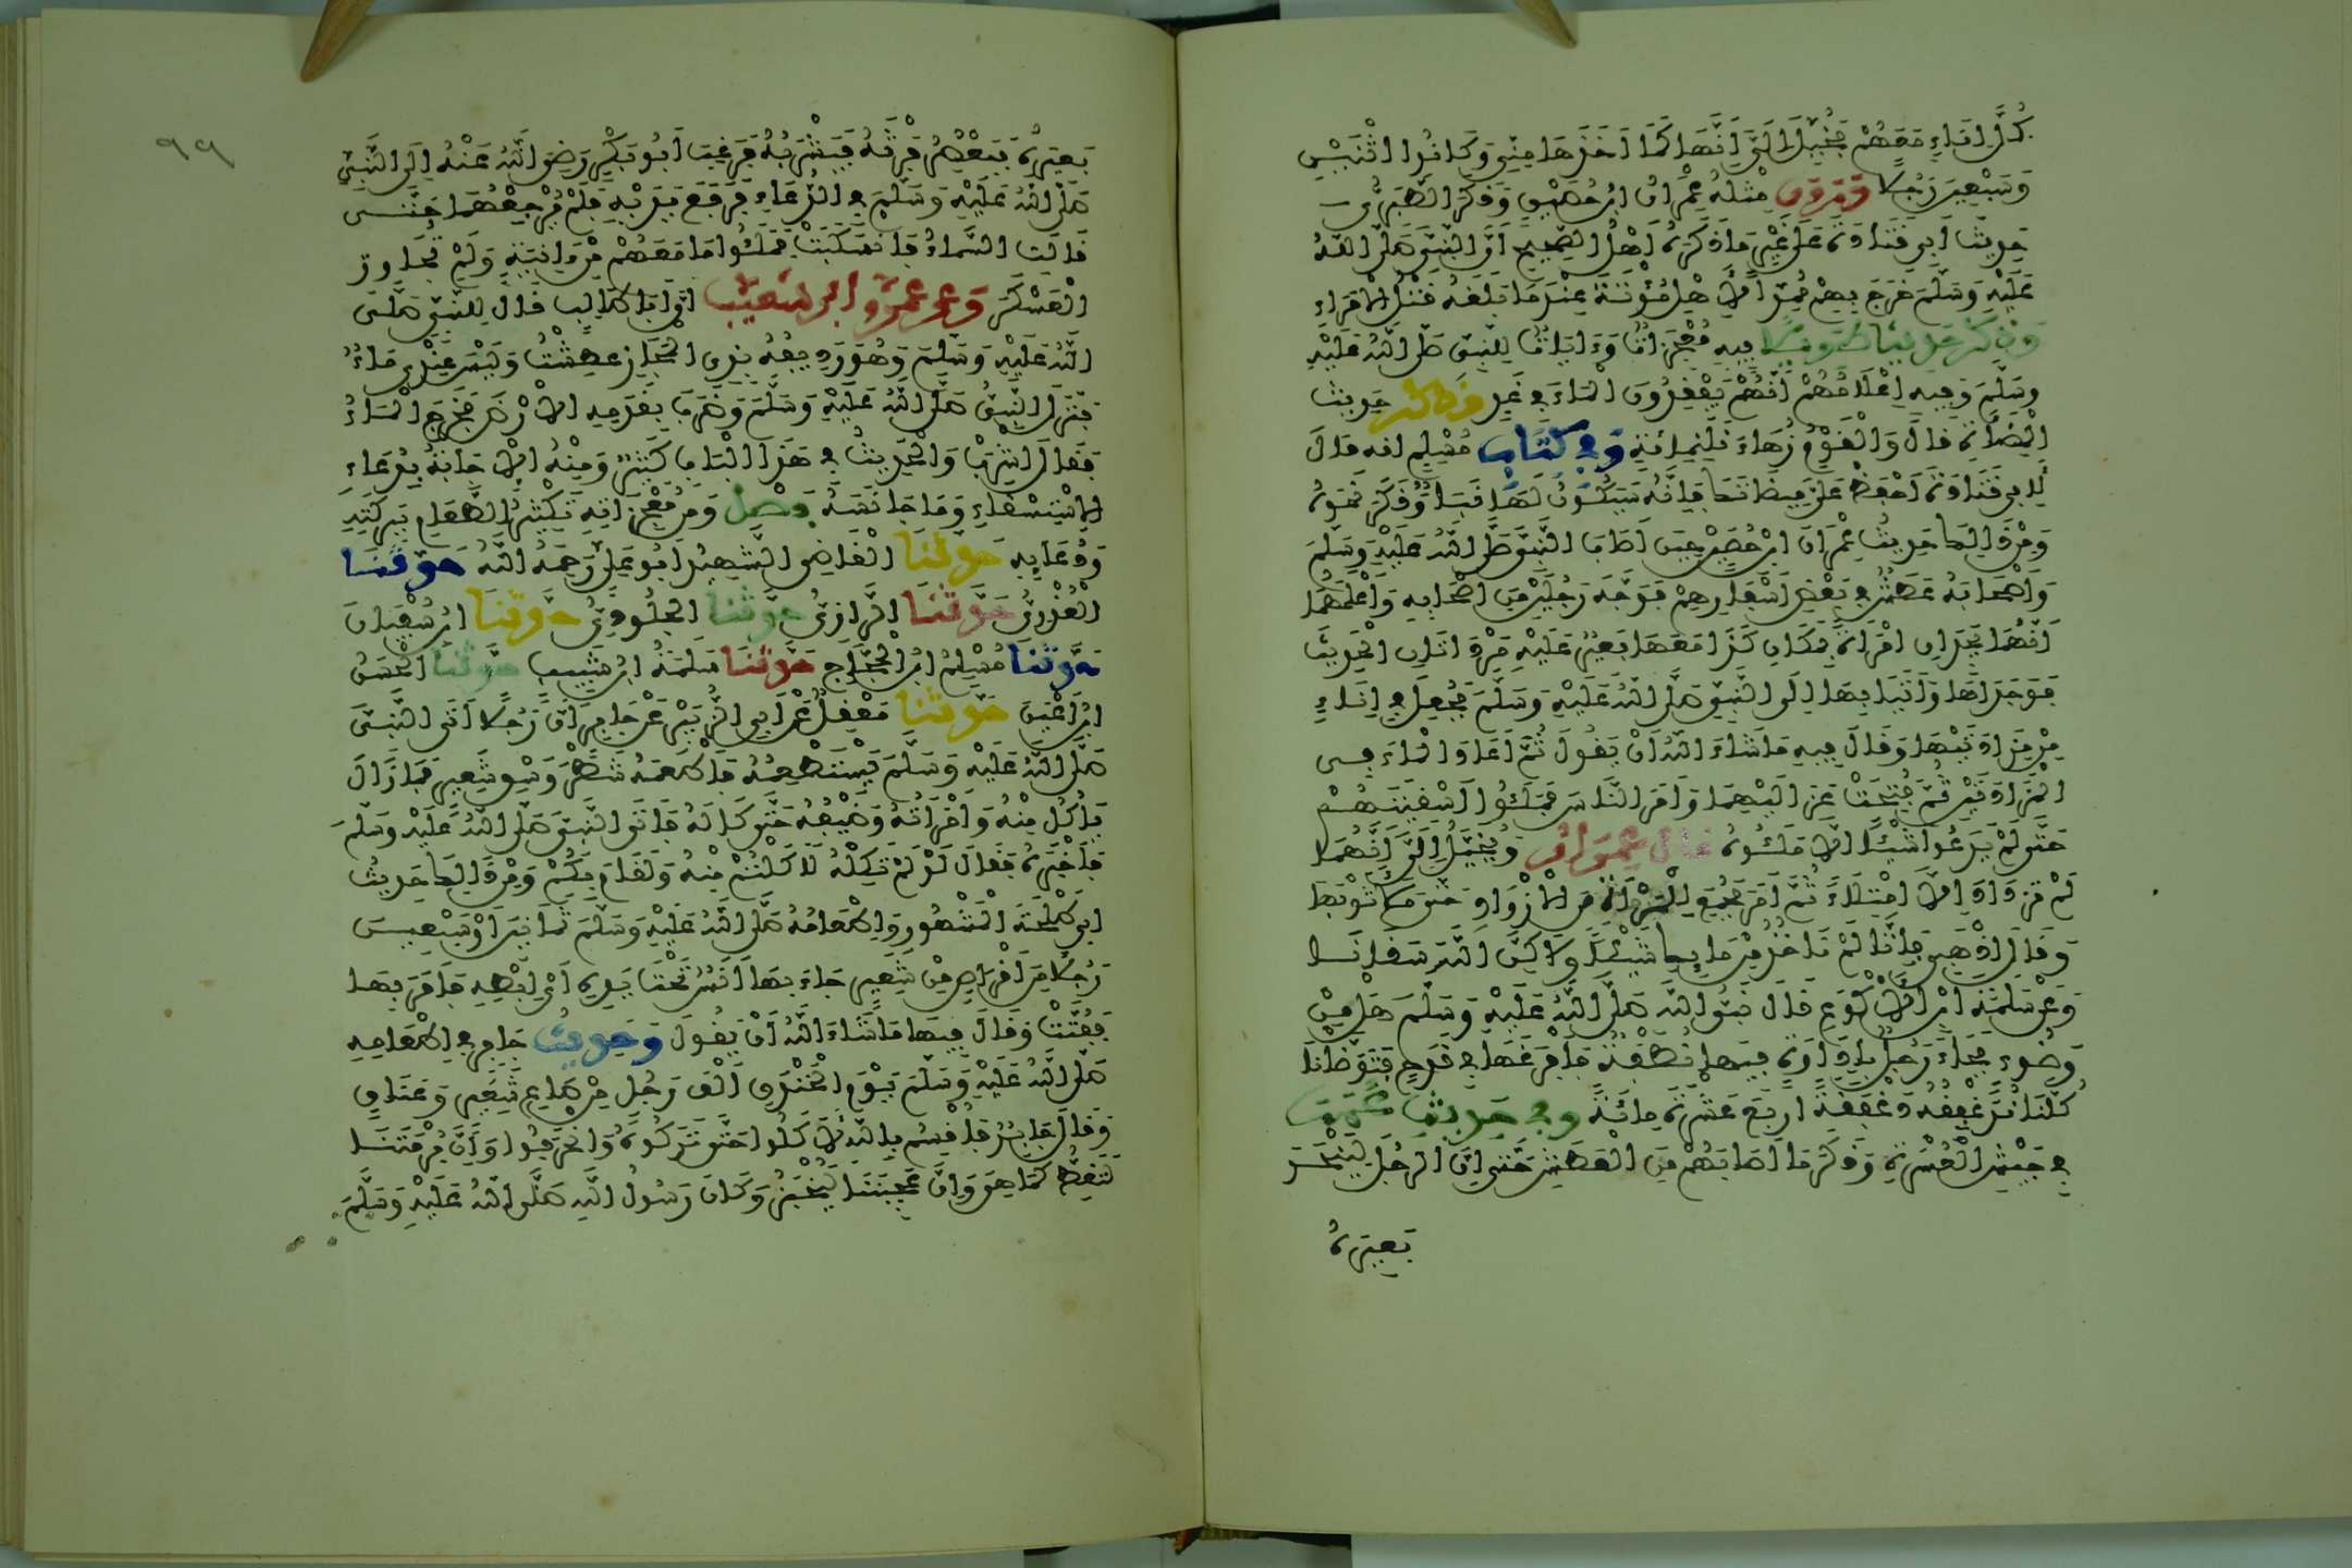 كُلَّ إِنَاءٍ مَعَهُمْ فَخُيِّلَ إِلَيَّ أَنَّهَا كَمَا أَخَذَهَا مِنِّي وَكَانُوا اثْنَيْنِ
وَسَبْعِينَ رَجُلًا وَرَوَى مِثْلَهُ عِمْرَانُ ابْنُ حُصَيْنٍ وَذَكَرَ الطَّبَرِيُّ
حَدِيثَ أَبِي قَتَادَةَ عَلَى غَيْرِ مَا ذَكَرَهُ أَهْلُ الصَّحِيحِ أَنَّ النَّبِيَّ صَلَّى اللَّهُ
عَلَيْهِ وَسَلَّمَ خَرَجَ بِهِمْ مُمِدًّا لِأَهْلِ مُؤْتَةَ عِنْدَمَا بَلَغَهُ قَتْلُ الْأُمَرَاءِ
وَذَكَرَ حَدِيثًا طَوِيلًا فِيهِ مُعْجِزَاتٌ وَءَايَاتٌ لِلنَّبِيِّ صَلَّى اللَّهُ عَلَيْهِ
وَسَلَّمَ وَفِيهِ إِعْلَامُهُمْ أَنَّهُمْ يَفْقِدُونَ الْمَاءَ فِي غَدٍ وَذَكَرَ حَدِيثَ
الْمِيضَأَةِ قَالَ وَالْقَوْمُ زُهَاءَ ثَلَثِمِائَةٍ وَفِي كِتَابِ مُسْلِمٍ أنه قَالَ
لِأَبِي قَتَادَةَ احْفَظْ عَلَيَّ مِيضَاتَكَ فَإِنَّهُ سَيَكُونُ لَهَا نَبَأٌ وَذَكَرَ نَحْوَهُ
وَمِنْ ذَالِكَ حَدِيثُ عِمْرَانَ ابْنِ حُصَيْنٍ حِينَ أَصَابَ النَّبِيَّ صَلَّى اللَّهُ عَلَيْهِ وَسَلَّمَ
وَأَصْحَابَهُ عَطَشٌ فِي بَعْضِ أَسْفَارِهِمْ فَوَجَّهَ رَجُلَيْنِ مِنْ أَصْحَابِهِ وَأَعْلَمَهُمَا
أَنَّهُمَا يَجِدَانِ امْرَأَةً بِمَكَانِ كَذَا مَعَهَا بَعِيرٌ عَلَيْهِ مَزَادَتَانِ الْحَدِيثَ
فَوَجَدَاهَا وَأَتَيَا بِهَا إِلَى النَّبِيِّ صَلَّى اللَّهُ عَلَيْهِ وَسَلَّمَ فَجُعِلَ فِي إِنَاءٍ
مِنْ مَزَادَتَيْهَا وَقَالَ فِيهِ مَا شَاءَ اللَّهُ أَنْ يَقُولَ ثُمَّ أَعَادَ الْمَاءَ فِي
الْمَزَادَتَيْنِ ثُمَّ فُتِحَتْ عَزَالِيهِمَا وَأَمَرَ النَّاسَ فَمَلَئُوا أَسْقِيَتَهُمْ
حَتَّى لَمْ يَدَعُوا شَيْئًا إِلَّا مَلَئُوهُ قَالَ عِمْرَانُ وَيُخَيَّلُ إِلَيَّ أَنَّهُمَا
لَمْ تَزْدَادَا إِلَّا امْتِلَاءً ثُمَّ أَمَرَ فَجُمِعَ لِلْمَرْأَةِ مِنَ الْأَزْوَادِ حَتَّى مَلَأَ ثَوْبَهَا
وَقَالَ اذْهَبِي فَإِنَّا لَمْ نَأْخُذْ مِنْ مَائِكِ شَيْئًا وَلَاكِنَّ اللَّهَ سَقَانَا
وَعَنْ سَلَمَةَ ابْنِ الْأَكْوَعِ قَالَ نَبِيُّ اللَّهِ صَلَّى اللَّهُ عَلَيْهِ وَسَلَّمَ هَلْ مِنْ
وَضُوءٍ فَجَاءَ رَجُلٌ بِإِدَاوَةٍ فِيهَا نُطْفَةٌ فَأَفْرَغَهَا فِي قَدَحٍ فَتَوَضَّأْنَا
كُلُّنَا نُدَغْفِقُهُ دَغْفَقَةً أَرْبَعَ عَشْرَةَ مِائَةً وَفِي حَدِيثِ عُمَرَ
فِي جَيْشِ الْعُسْرَةِ وَذَكَرَ مَا أَصَابَهُمْ مِنَ الْعَطَشِ حَتَّى إِنَّ الرَّجُلَ لَيَنْحَرُ
بَعِيرَهُ
٩٩
بَعِيرَهُ فَيَعْصِرُ فَرْثَهُ فَيَشْرَبُهُ فَرَغِبَ أَبُو بَكْرٍ رَضِيَ اللَّهُ عَنْهُ إِلَى النَّبِيِّ
صَلَّى اللَّهُ عَلَيْهِ وَسَلَّمَ فِي الدُّعَاءِ فَرَفَعَ يَدَيْهِ فَلَمْ يُرْجِعْهُمَا حَتَّى
قَالَتِ السَّمَاءُ فَانْسَكَبَتْ فَمَلَئُوا مَا مَعَهُمْ مِنْ ءَانِيَةٍ وَلَمْ تُجَاوِزِ
الْعَسْكَرَ وَعَنْ عَمْرِو ابْنِ شُعَيْبٍ أَنَّ أَبَا طَالِبٍ قَالَ لِلنَّبِيِّ صَلَّى
اللَّهُ عَلَيْهِ وَسَلَّمَ وَهُوَ رَدِيفُهُ بِذِي الْمَجَازِ عَطِشْتُ وَلَيْسَ عِنْدِي مَاءٌ
فَنَزَلَ النَّبِيُّ صَلَّى اللَّهُ عَلَيْهِ وَسَلَّمَ وَضَرَبَ بِقَدَمِهِ الْأَرْضَ فَخَرَجَ الْمَاءُ
فَقَالَ اشْرَبْ وَالْحَدِيثُ فِي هَذَا الْبَابِ كَثِيرٌ وَمِنْهُ الْإِجَابَةُ بِدُعَاءِ
الِاسْتِسْقَاءِ وَمَا جَانَسَهُ فَصْلٌ وَمِنْ مُعْجِزَاتِهِ تَكْثِيرُ الطَّعَامِ بِبَرَكَتِهِ
وَدُعَائِهِ حَدَّثَنَا الْقَاضِي الشَّهِيدُ أَبُو عَلِيٍّ رَحِمَهُ اللَّهُ حَدَّثَنَا
الْعُذْرِيُّ حَدَّثَنَا الرَّازِيُّ حَدَّثَنَا الْجُلُودِيُّ حَدَّثَنَا ابْنُ سُفْيَانَ
حَدَّثَنَا مُسْلِمُ ابْنُ الْحَجَّاجِ حَدَّثَنَا سَلَمَةُ ابْنُ شَبِيبٍ حَدَّثَنَا الْحَسَنُ
ابْنُ أَعْيَنَ حَدَّثَنَا مَعْقِلٌ عَنْ أَبِي الزُّبَيْرِ عَنْ جَابِرٍ أَنَّ رَجُلًا أَتَى النَّبِيَّ
صَلَّى اللَّهُ عَلَيْهِ وَسَلَّمَ يَسْتَطْعِمُهُ فَأَطْعَمَهُ شَطْرَ وَسْقِ شَعِيرٍ فَمَا زَالَ
يَأْكُلُ مِنْهُ وَامْرَأَتُهُ وَضَيْفُهُ حَتَّى كَالَهُ فَأَتَى النَّبِيَّ صَلَّى اللَّهُ عَلَيْهِ وَسَلَّمَ
فَأَخْبَرَهُ فَقَالَ لَوْ لَمْ تَكِلْهُ لَأَكَلْتُمْ مِنْهُ وَلَقَامَ بِكُمْ وَمِنْ ذَالِكَ حَدِيثُ
أَبِي طَلْحَةَ الْمَشْهُورُ وَإِطْعَامُهُ صَلَّى اللَّهُ عَلَيْهِ وَسَلَّمَ ثَمَانِينَ أَوْ سَبْعِينَ
رَجُلًا مِنْ أَقْرَاصٍ مِنْ شَعِيرٍ جَاءَ بِهَا أَنَسٌ تَحْتَ يَدِهِ أَيْ إِبْطِهِ فَأَمَرَ بِهَا
فَفُتَّتْ وَقَالَ فِيهَا مَا شَاءَ اللَّهُ أَنْ يَقُولَ وَحَدِيثُ جَابِرٍ فِي إِطْعَامِهِ
صَلَّى اللَّهُ عَلَيْهِ وَسَلَّمَ يَوْمَ الْخَنْدَقِ أَلْفَ رَجُلٍ مِنْ صَاعِ شَعِيرٍ وَعَنَاقٍ
وَقَالَ جَابِرٌ فَأُقْسِمُ بِاللَّهِ لَأَكَلُوا حَتَّى تَرَكُوهُ وَانْحَرَفُوا وَإِنَّ بُرْمَتَنَا
لَتَغِطُّ كَمَا هِيَ وَإِنَّ عَجِينَنَا لَيُخْبَزُ وَكَانَ رَسُولُ اللَّهِ صَلَّى اللَّهُ عَلَيْهِ وَسَلَّمَ